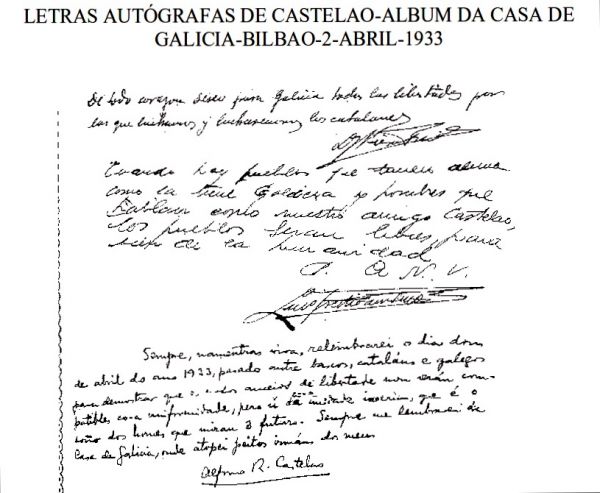 LETRAS AUTÓGRAFAS DE CASTELAO-ALBUM DA CASA DE
GALICIA-BILBAO-2-ABRIL-1933
De todo corazon deseo para Galicia todas las libertades por
las que luchamos y lucharemos los catalanes
Cuando hay pueblos que tienen alma
como la tiene y hombres que
hablan como nuestro amigo Castelao,
los pueblos seran libres para
bien de la humanidad
P. A. N. V.
Sempre, namentras viva, relembrarei o dia dous
de abril do ano 1933, pasado entre bascos, cataláns e galegos
para demostrar que os anceios de libertade non erán com-
patibles co-a uniformidade, pero si da que é o
dos homes que miran ô futuro. Sempre me lembrarei da
Casa de Galicia, onde atopei peitos irmáns do meu
Alfonso R. Castelao